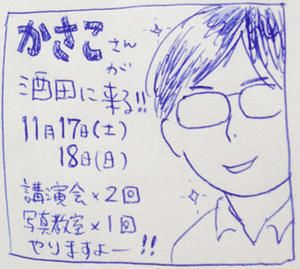 かさこさん
が
酒田に来る!!
11月17日(土)
18日(日)
講演会×2回
写真教室×1回
やりますよー!!